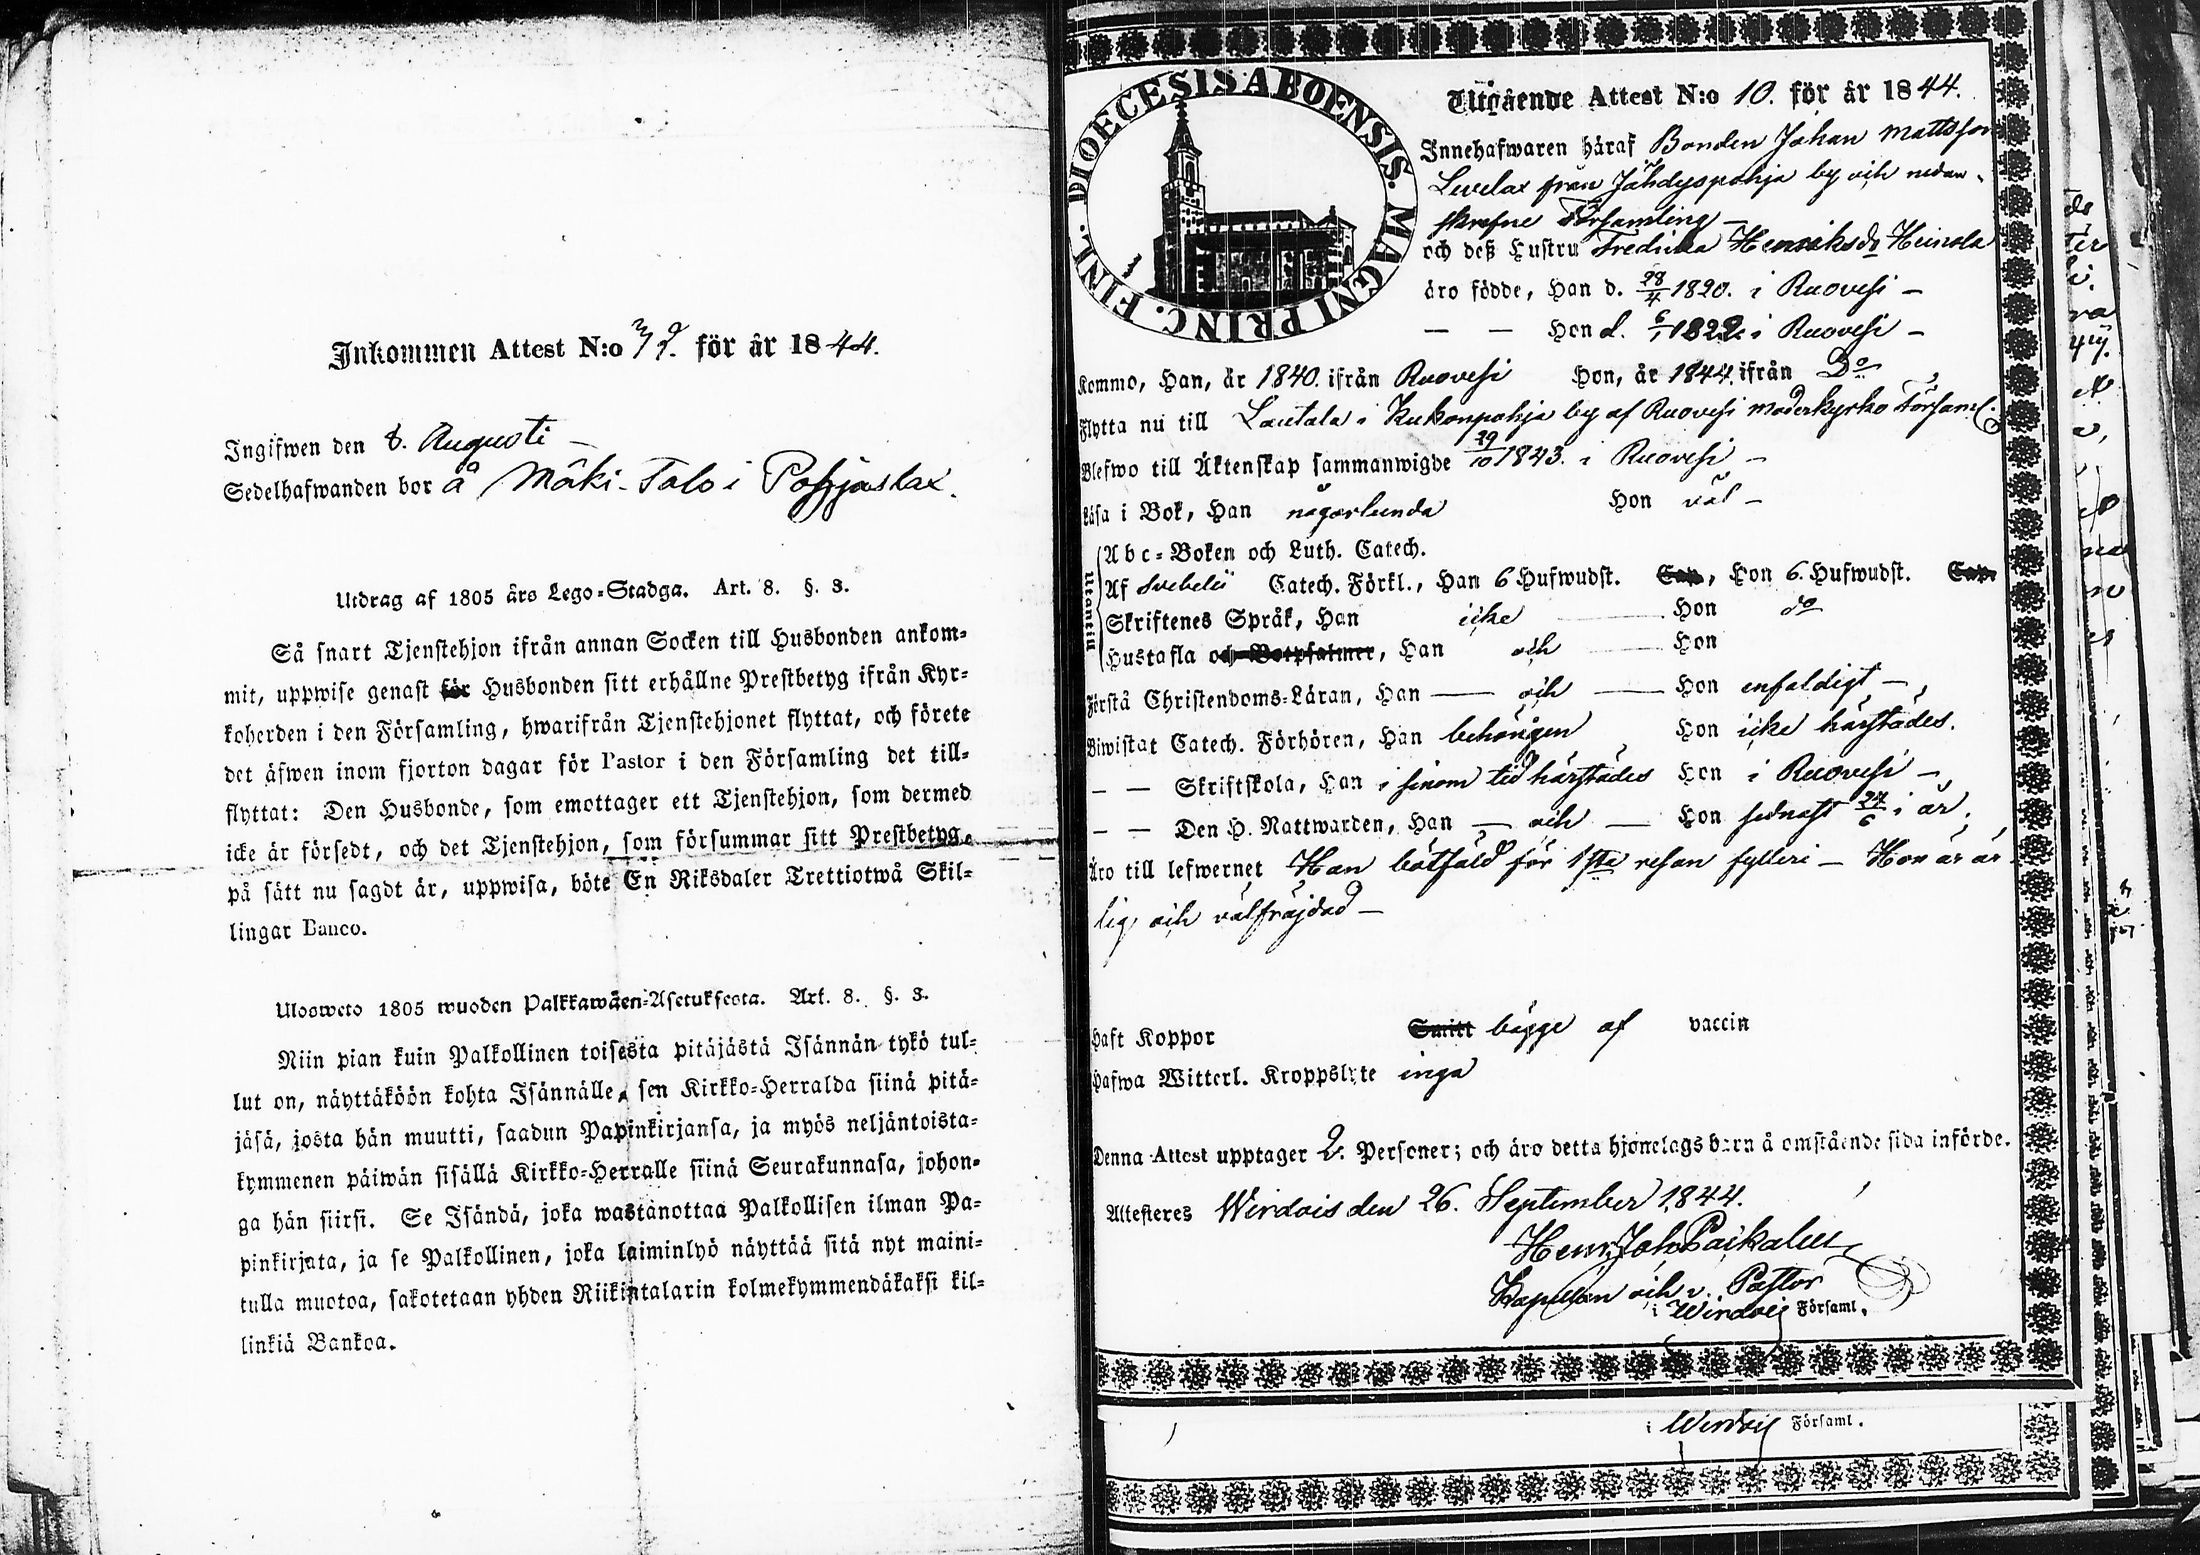 Inkommen Attest N:o 32. för år 1844.
Ingifwen den 8. Augusti –
Sedelhafwanden bor å Mäki-Talo i Pohjaslax.
Utdrag af 1805 års Lego-Stadga. Art. 8. §. 3.
Så snart Tjenstehjon ifrån annan Socken till Husbonden ankom-
mit, uppwise genast för Husbonden sitt erhållne Prestbetyg ifrån Kyr-
koherden i den Församling, hwarifrån Tjenstehjonet flyttat, och förete
det äfwen inom fjorton dagar för Pastor i den Församling det till-
flyttat: Den Husbonde, som emottager ett Tjenstehjon, som dermed
icke är försedt, och det Tjenstehjon, som försummar sitt Prestbetyg,
på sätt nu sagdt är, uppwisa, böte En Riksdaler Trettiotwå Skil-
lingar Banco.
Ulosweto 1805 wuoden Palkkawäen-Asetuksesta. Art. 8. §. 3.
Niin pian kuin Palkollinen toisesta pitäjästä Isännän tykö tul-
lut on, näyttäköön kohta Isännälle, sen Kirkko-Herralda siinä pitä-
jäsä, josta hän muutti, saadun Papinkirjansa, ja myös neljäntoista-
kymmenen päiwän sisällä Kirkko-Herralle siinä Seurakunnasa, johon-
ga hän siirsi. Se Isändä, joka wastanottaa Palkollisen ilman Pa-
pinkirjata, ja se Palkollinen, joka laiminlyö näyttää sitä nyt maini-
tulla muotoa, sakotetaan yhden Riikintalarin kolmekymmendäkaksi kil-
linkiä Bankoa.
DIOECESIS ABOENSIS. MAGNI PRINC. FINL.
Utgående Attest N:o 10. för år 1844.
Innehafwaren häraf Bonden Johan Mattsson
Levelax från Jähdyspohja by och nedan-
skrefne Församling –
och deß Hustru Fredrika Henriksdr Heinola
äro födde, Han d. 28/4 1820. i Ruovesi –
– – Hon d. 6/1 1822 i Ruovesi –
Kommo, Han, år 1840. ifrån Ruovesi Hon, år 1844. ifrån Do
Flytta nu till Lautala i Kukonpohja by af Ruovesi moderkyrko Församl.
Blefwo till Äktenskap sammanwigde 29/10 1843. i Ruovesi –
Läsa i Bok, Han någorlunda Hon väl –
Utantill
Abc-Boken och Luth. Catech.
Af Svebelii Catech. Förkl., Han 6 Hufwudst. Cap., Hon 6. Hufwudst. Cap.
Skriftenes Språk, Han icke Hon do
Hustafla och Botpsalmer, Han och Hon
Förstå Christendoms-Läran, Han – och – Hon enfaldigt –
Biwistat Catech. Förhören, Han behörigen Hon icke härstädes.
– – Skriftskola, Han i sinom tid härstädes Hon i Ruovesi –
– – Den H. Nattwarden, Han – och – Hon sednast 24/6 i år.
Äro till lefwernet Han bötfäld för 1sta resan fylleri – Hon är är-
lig och välfräjdad –
Haft Koppor Smitt bägge af vaccin
Hafwa Witterl. Kroppslyte inga
Denna Attest upptager 2. Personer; och äro detta hjonelags barn å omstående sida införde.
Attesteres Wirdois den 26. September 1844.
Henr. Joh. Paikalus
Kapellan och v. Pastor
i Wirdois Församl.
i Wirdois Församl.